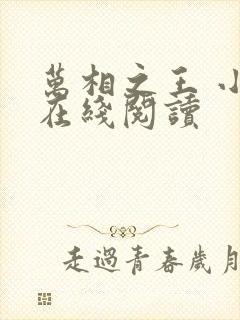 萬相之王 小
在綫閱讀
走過青春歲月